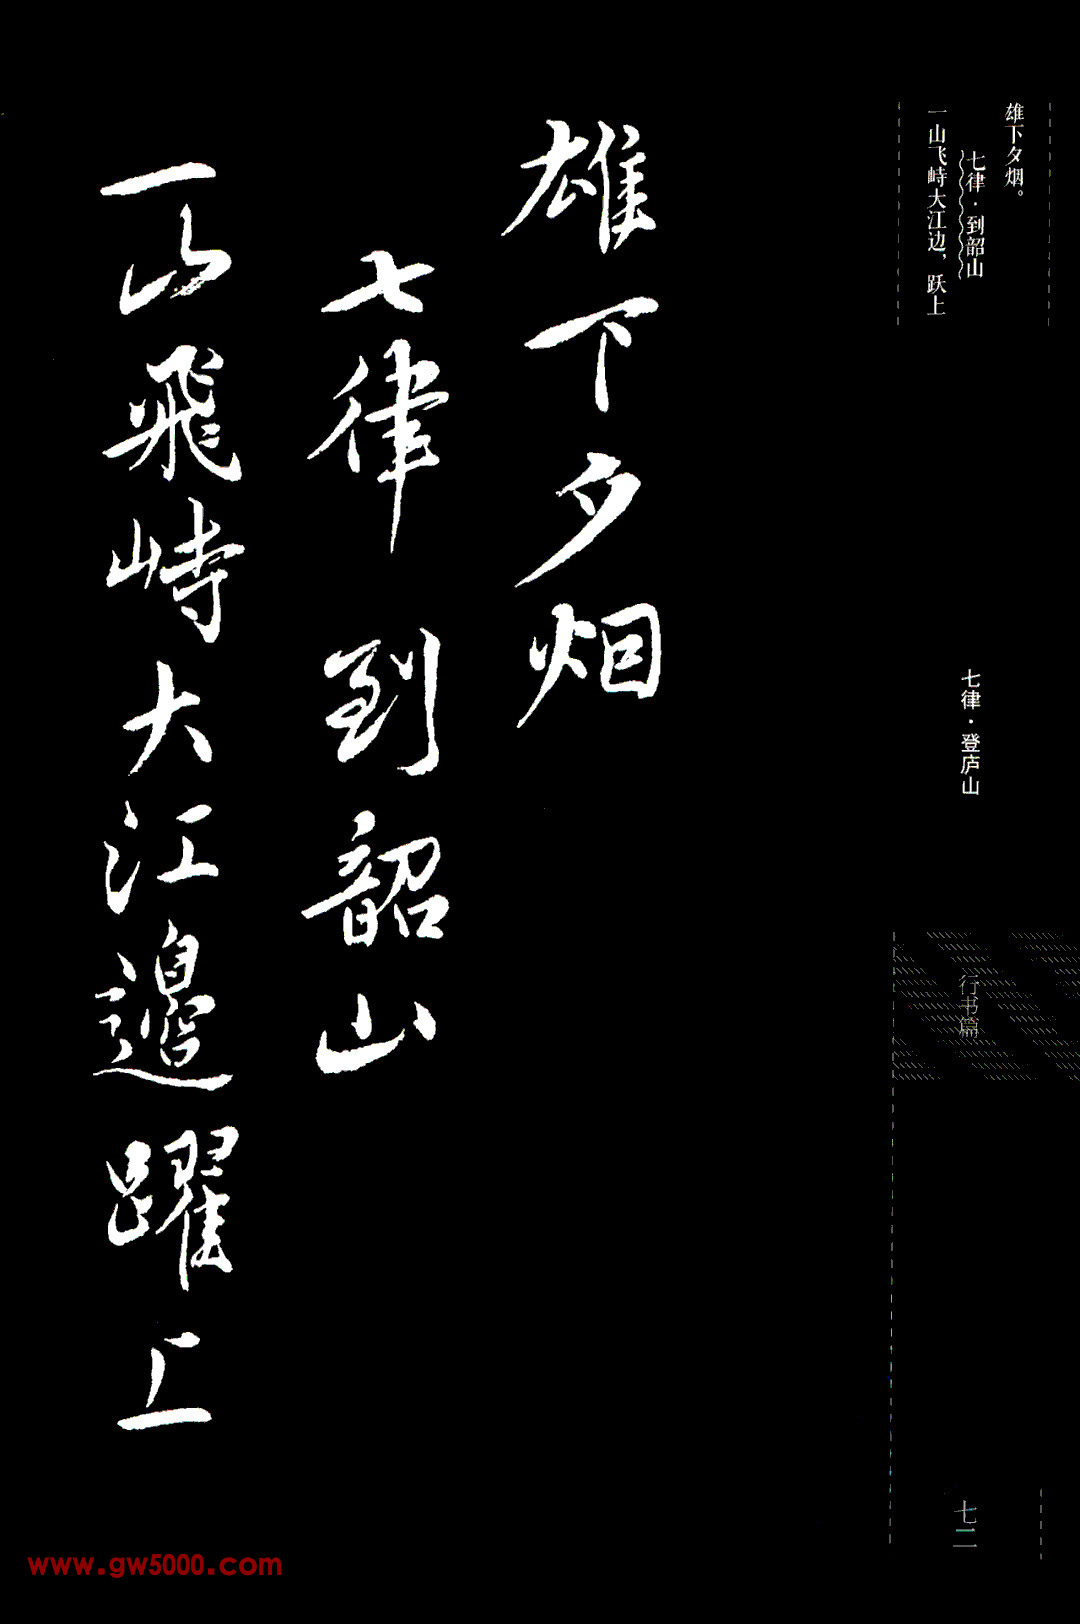 雄下夕烟。
七律·到韶山
一山飞峙大江边，跃上
七律·登庐山
行书篇
七二
雄下夕烟
七律到韶山
一山飛峙大江邊躍上
www.gw5000.com